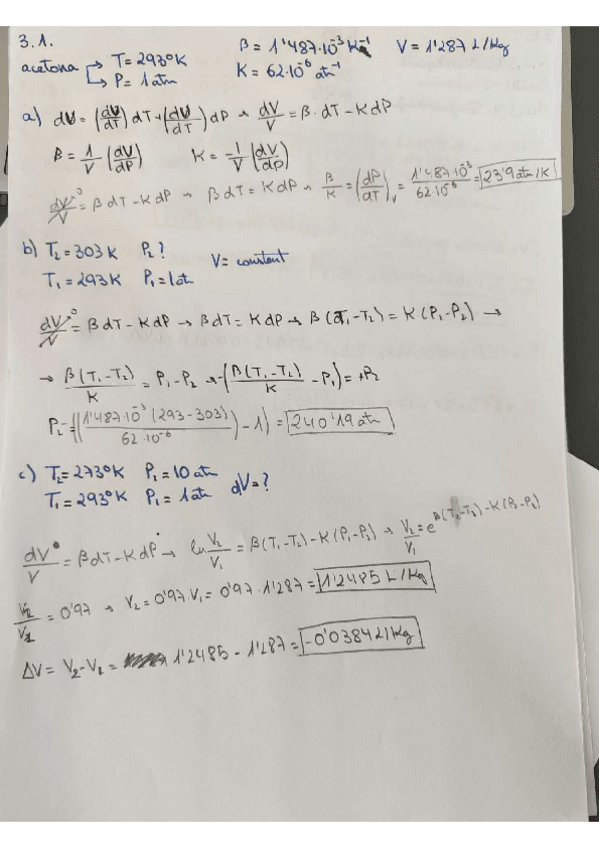 3.1.
acetona → T = 293ºK β = 1'487·10⁻³ K⁻¹ V = 1'287 L/Kg
↳ P = 1 atm K = 62·10⁻⁶ atm⁻¹
a) dV = (dV/dT) dT + (dV/dT) dP → dV/V = β·dT − KdP
β = 1/V (dV/dP) K = −1/V (dV/dP)
dV/V⁰ = βdT − KdP → βdT = KdP → β/K = (dP/dT)ᵥ = 1'487·10⁻³/62·10⁻⁶ = 23'9 atm/K
b) T₂ = 303K P₂? V = constent
T₁ = 293K P₁ = 1atm
dV/V⁰ = βdT − KdP → βdT = KdP → β(T₁−T₂) = K(P₁−P₂) →
→ β(T₁−T₂)/K = P₁−P₂ → −(β(T₁−T₂)/K − P₁) = +P₂
P₂ = −((1'487·10⁻³(293−303)/62·10⁻⁶) − 1) = 240'19 atm
c) T₂ = 273ºK P₂ = 10 atm dV = ?
T₁ = 293ºK P₁ = 1 atm
dV/V = βdT − KdP → ln V₂/V₁ = β(T₁−T₂) − K(P₁−P₂) → V₂/V₁ = e^β(T₂−T₂)−K(P₂−P₁)
V₂/V₁ = 0'97 → V₂ = 0'97·V₁ = 0'97·1'287 = 1'2485 L/Kg
ΔV = V₂−V₁ = 1'2485 − 1'287 = −0'0384 L/Kg